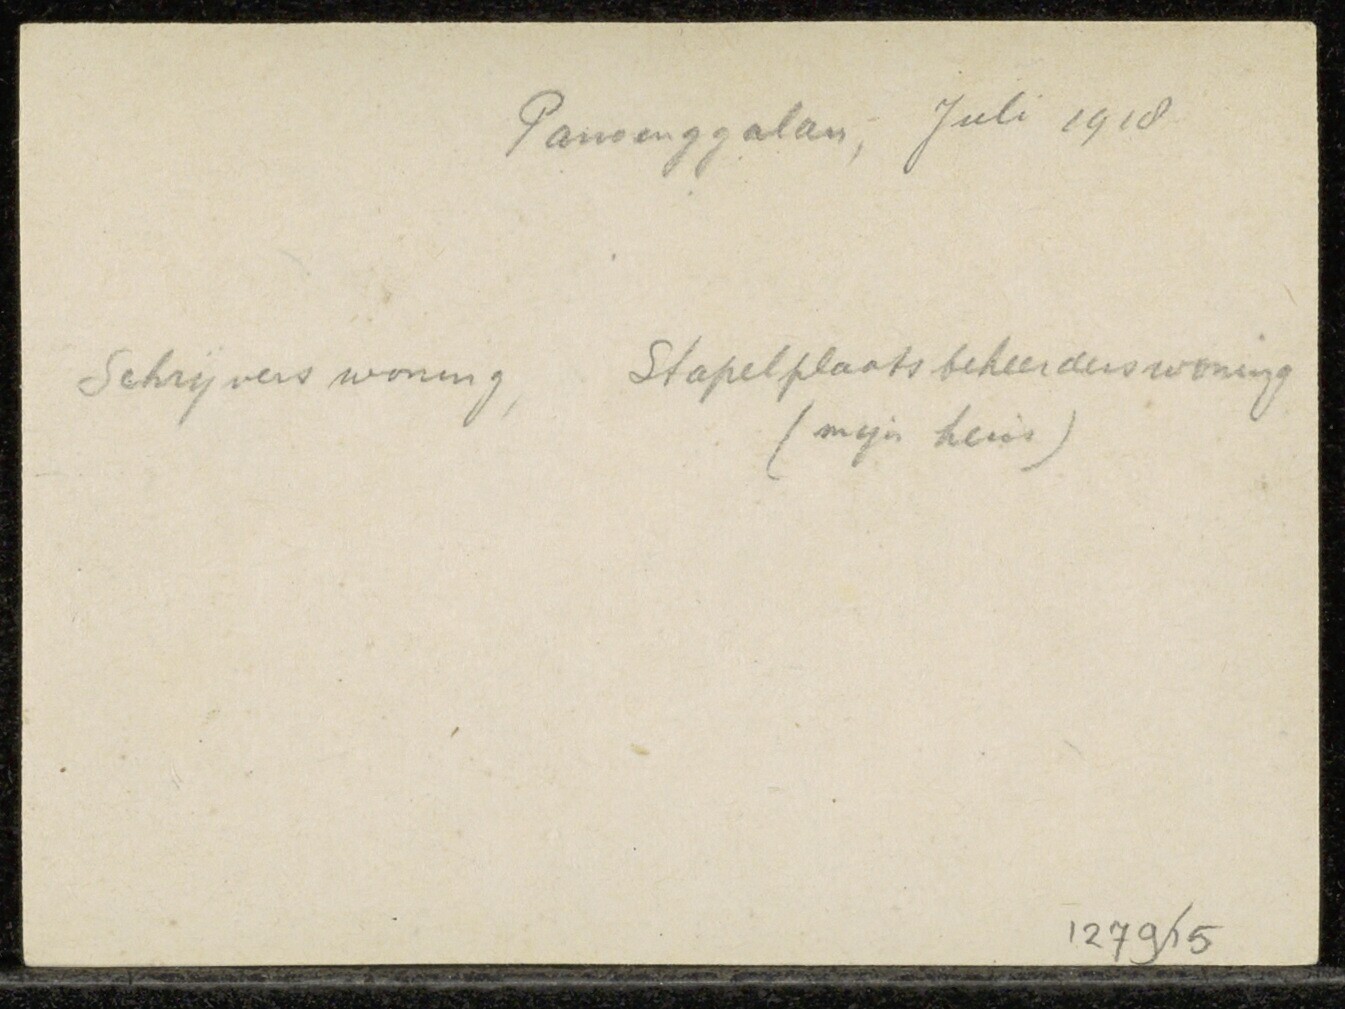 Panoenggalan, Juli 1918
Schrijvers woning, Stapelplaatsbeheerderswoning
(mijn huis)
1279/5